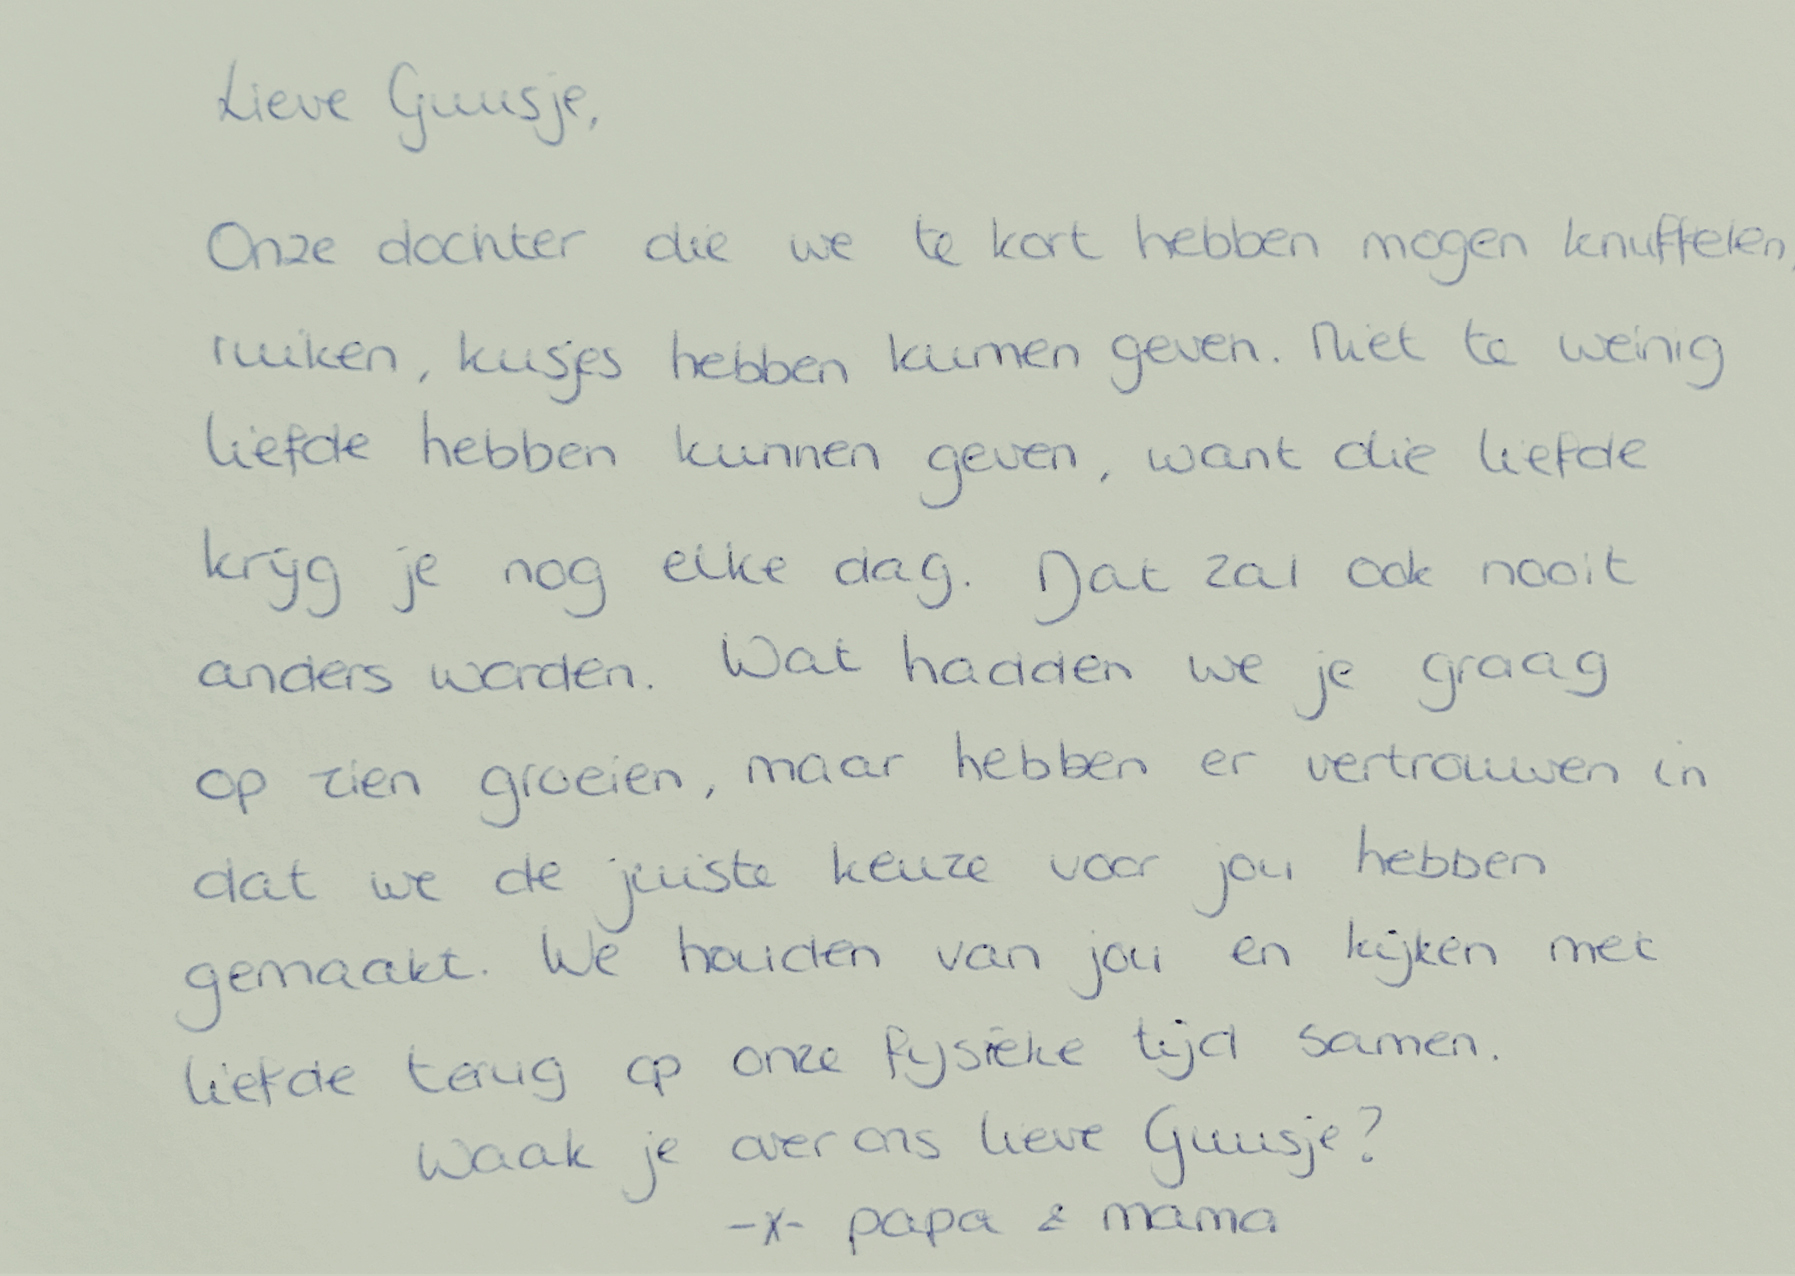 Lieve Guusje,
Onze dochter die we te kort hebben mogen knuffelen,
ruiken, kusjes hebben kunnen geven. Niet te weinig
liefde hebben kunnen geven, want die liefde
krijg je nog elke dag. Dat zal ook nooit
anders worden. Wat hadden we je graag
op zien groeien, maar hebben er vertrouwen in
dat we de juiste keuze voor jou hebben
gemaakt. We houden van jou en kijken met
liefde terug op onze fysieke tijd samen.
Waak je over ons lieve Guusje?
-x- papa & mama